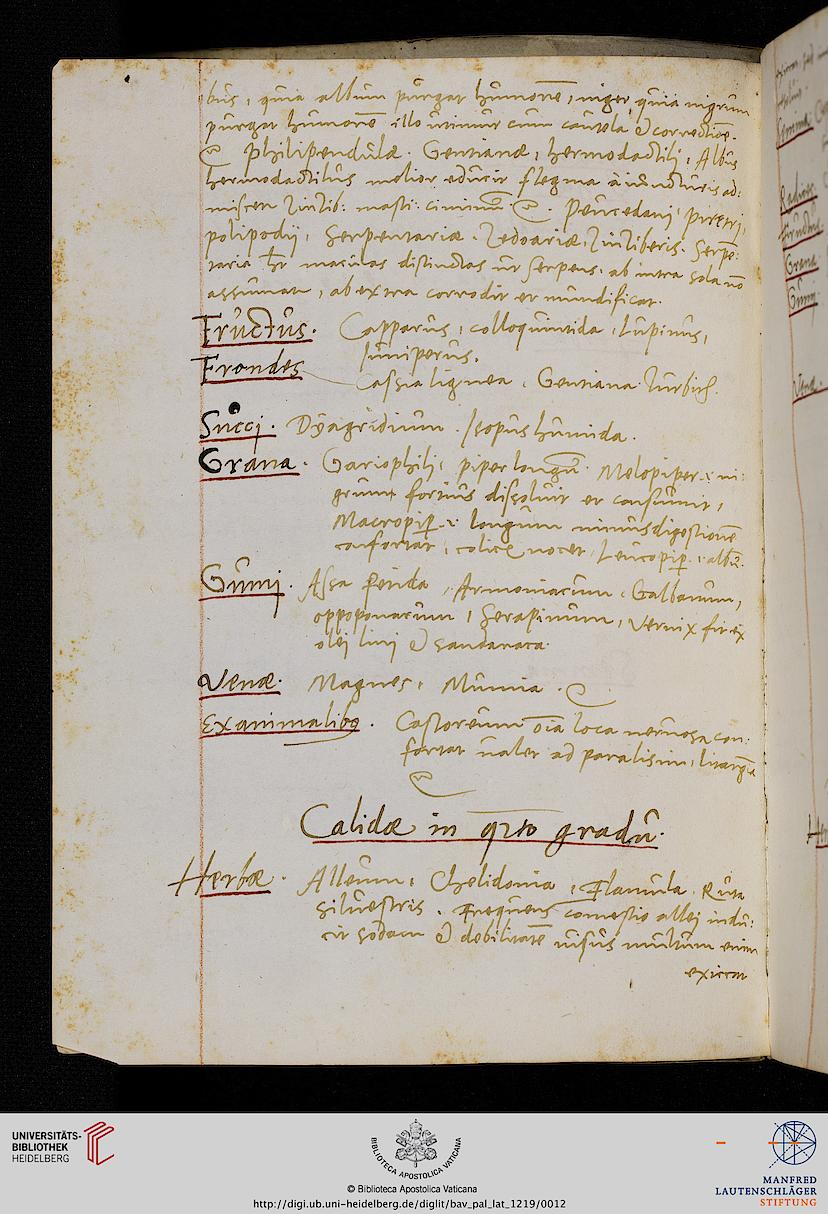 bus, quia album purgat humorē, niger, quia nigrum
purgat humorē illo utimur cum cautela & correctiōe.
Philipendulæ. Gentianæ, hermodactili, Albus
hermodactilus melior educit flegma à iuncturis ad:
miscen zinzib: masti: ciminū &. Peucedani, piretri,
polipodij, Serpentariæ. Zedoariæ, Zinziberis. Serpē:
taria hr̄ maculas distinctas ut serpens, ab intra sola nō
assumat, ab extra corrodit et mundificat.
Fructus. Capparus, colloquintida, Lupinus,
Juniperus.
Frondes Cassia lignea, Gentiana Turbith.
Succi. Dyagridium. Isopus humida.
Grana. Gariophili, piper longū. Melopiper .i. ni:
grum fortius dissoluit et consumit,
Macropip̄ .i. longum minus digestionē
confortat, colicę nocet, Leucopip̄ .i. albū.
Gumi. Assa fetida, Armoniacum, Galbanum,
oppoponacum, Serapinum, Vernix fit ex
olei lini & sandaraca.
Venæ. Magnes, Mumia.
Ex animalibꝰ. Castoreum oīa loca neruosa con:
fortat ualet ad paralisim, litargiā
Calidæ in qrto gradu.
Herbæ. Alleum, Chelidonia, Flamula. Ruta
siluestris. Frequens comestio allei indu:
cit sodam & debilitatē uisus multum enim
exiccat
Radices.
Fructus
Grana
Gumi
Venæ.
UNIVERSITÄTS-
BIBLIOTHEK
HEIDELBERG
BIBLIOTECA APOSTOLICA VATICANA
© Biblioteca Apostolica Vaticana
http://digi.ub.uni-heidelberg.de/diglit/bav_pal_lat_1219/0012
MANFRED
LAUTENSCHLÄGER
STIFTUNG